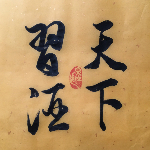 天下
習酒